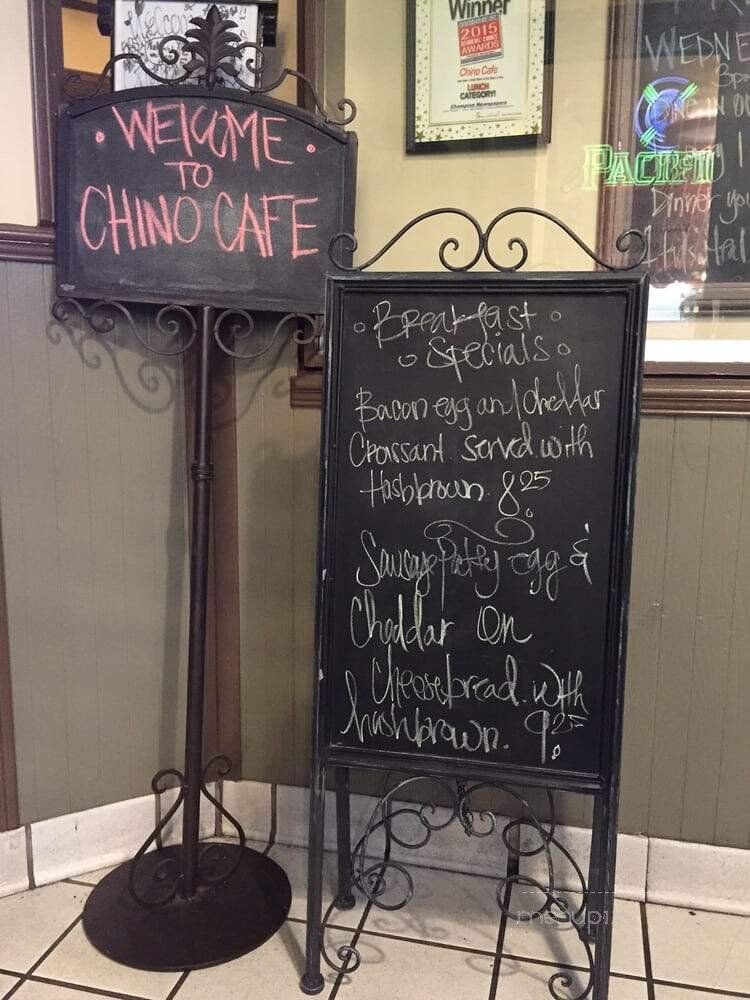 WELCOME
TO
CHINO CAFE
Winner
2015
AWARDS
Chino Cafe
LUNCH
CATEGORY!
Champion Newspapers
WEDNE
PACIFICO
Dinner you
Breakfast
Specials
Bacon egg and cheddar
Croissant served with
Hashbrown. 8.25
Sausage Patty egg &
Cheddar On
Cheesebread. with
hashbrown. 9.25
menupix